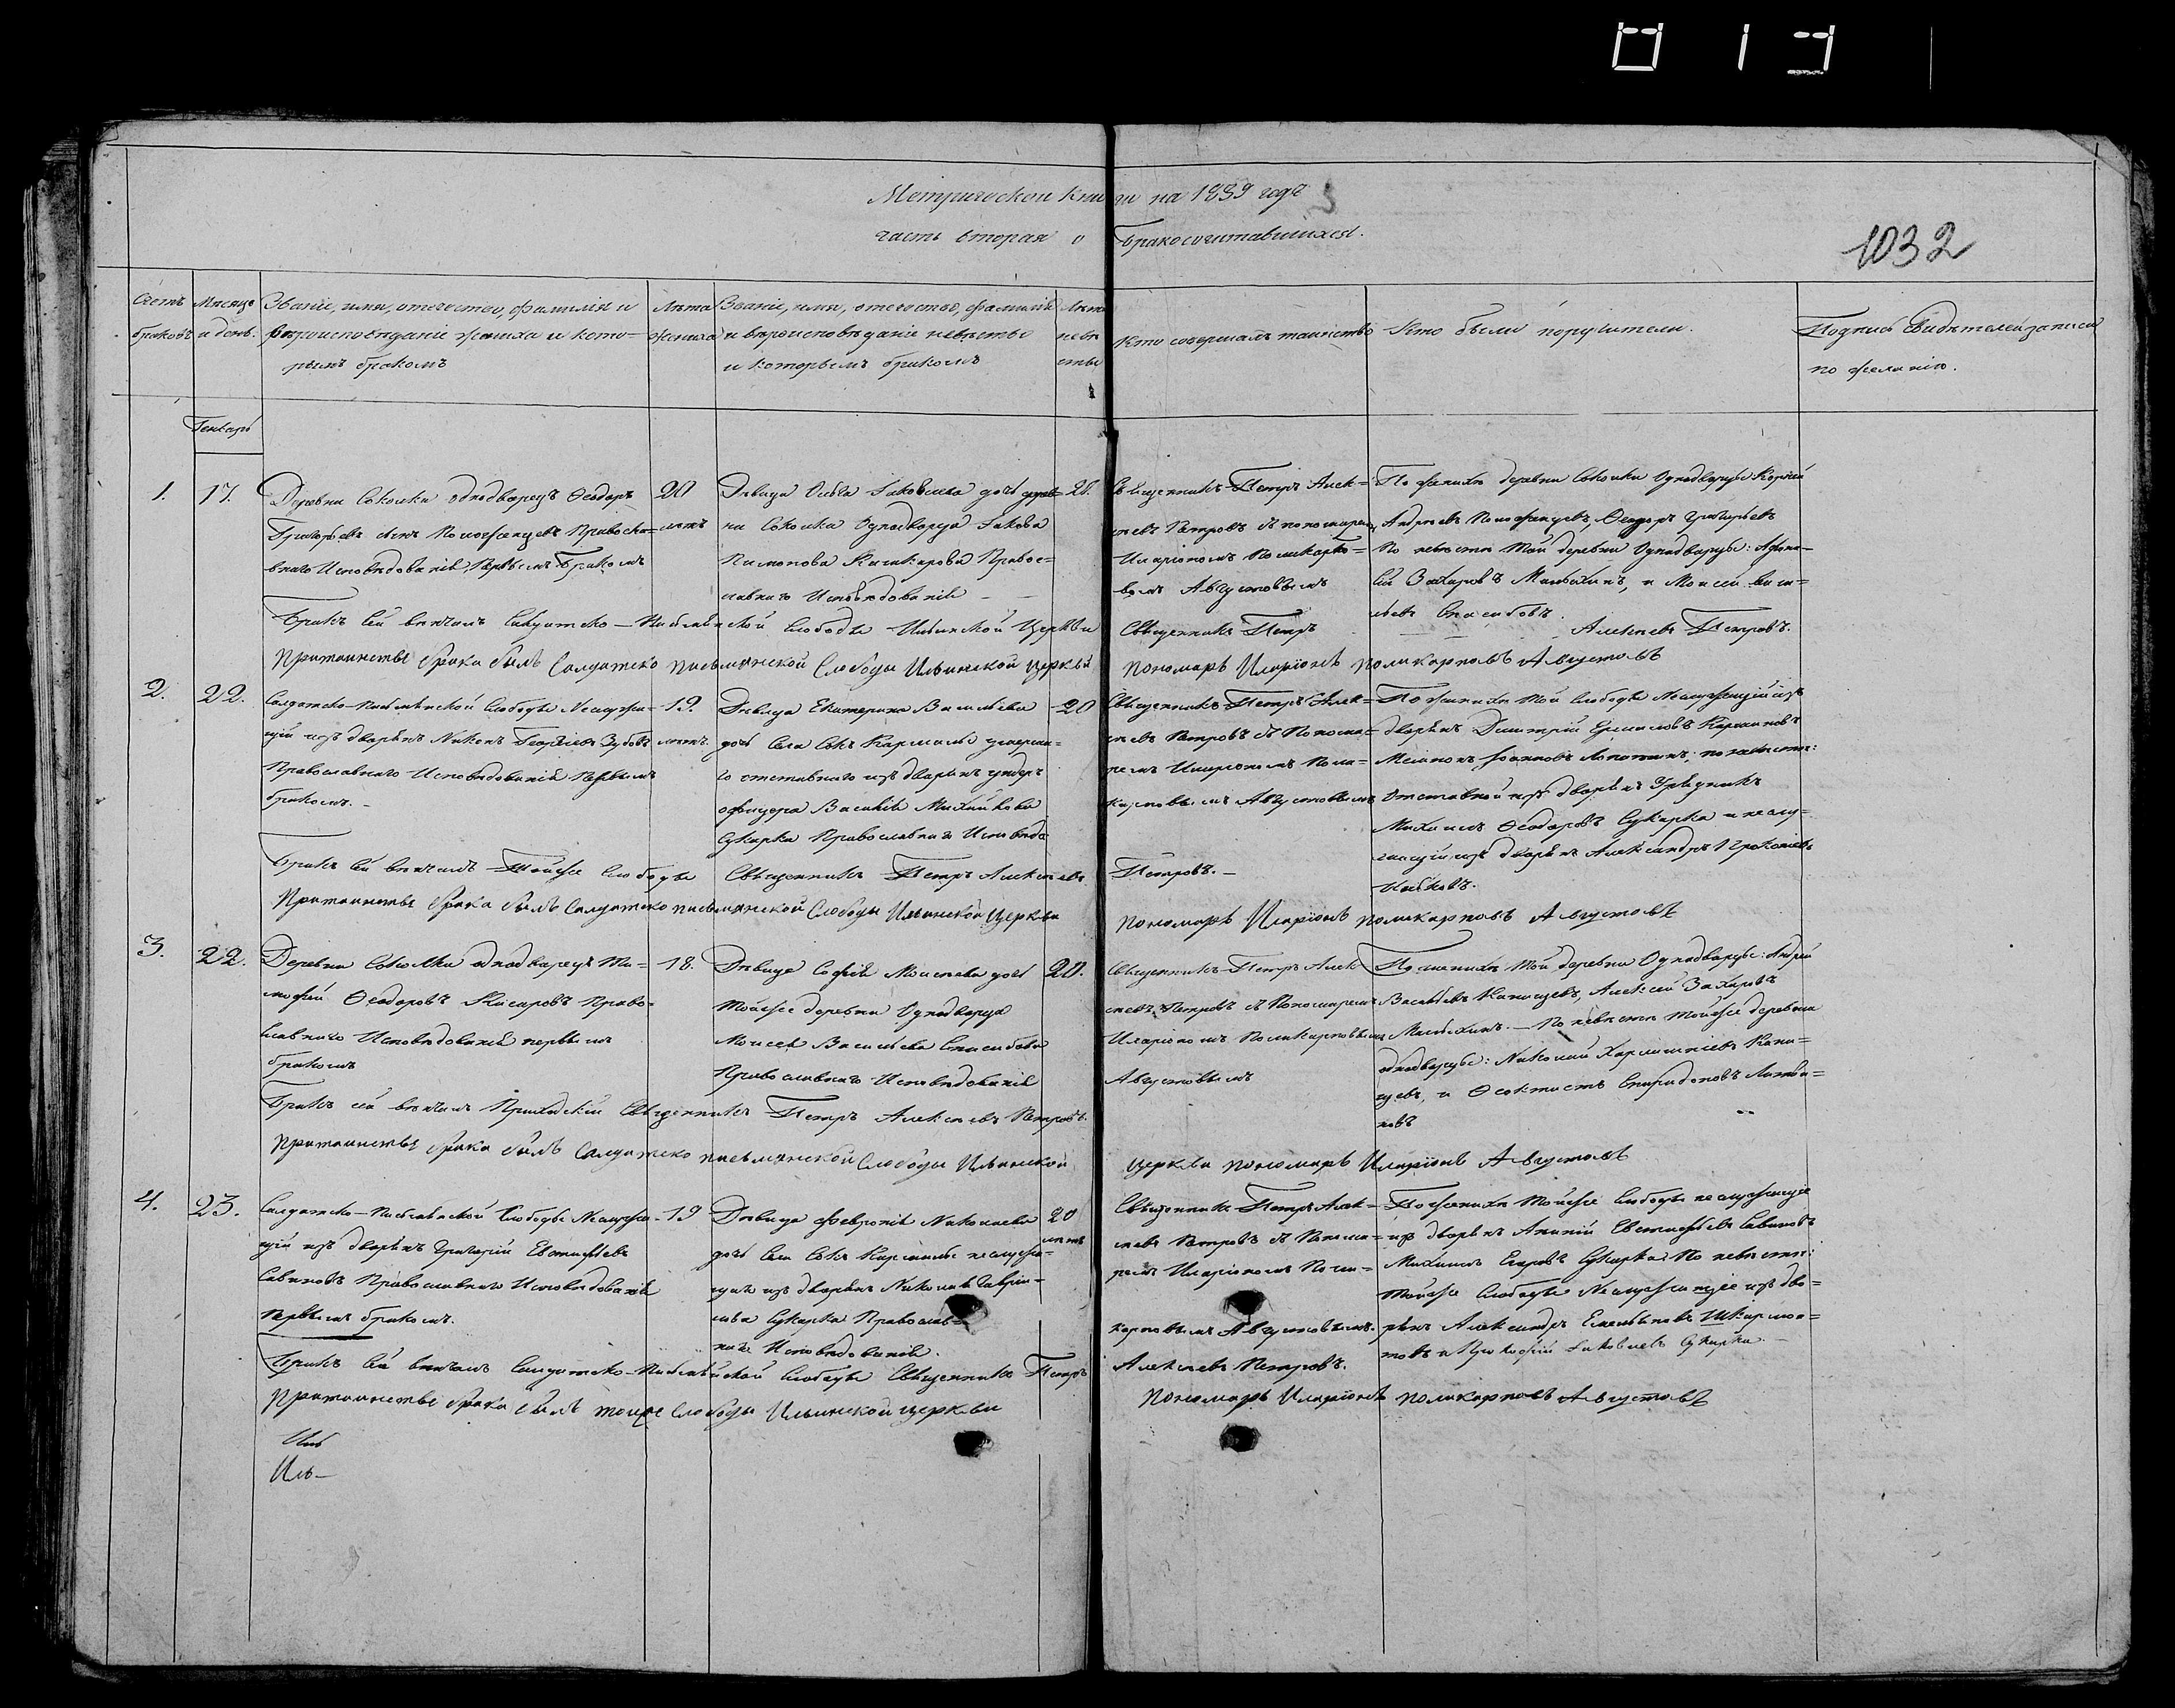 019
Метрической книги на 1839 годъ
часть вторая о бракосочитавшихся.
1032
Счетъ браковъ
Месяцъ и день.
Званіе, имя, отечество, фамилія и
вѣроисповѣданіе жениха и кото-
рымъ бракомъ
Лѣта жениха
Званіе, имя, отечество, фамилія
и вѣроисповѣданіе невѣсты
и которымъ бракомъ
Лѣта невѣсты
Кто совершалъ таинство
Кто были поручители.
Подпись Свидѣтелей записи
по желанію.
Генварь
1.
17.
Деревни Соколки однодворецъ Ѳеодоръ
Григорьевъ сынъ Православ-
наго Исповѣдованія, Первымъ Бракомъ
20
лѣтъ
Дѣвица Яковлева дочь дерев-
ни Соколки Однодворца Іакова
Пимонова Правос-
лавнаго Исповѣдованія
20.
Священникъ Петръ Алек=
сѣевъ Петровъ съ пономаремъ
Иларіономъ Поликарпо=
вымъ Августовымъ
По женихѣ деревни Соколки Однодворцы Корній
Андреевъ Ѳеодоръ Григорьевъ
По невѣстѣ той деревни Однодворцы: Афона-
сій Захаровъ и Моисей Васи=
льевъ Спасибовъ.
Бракъ сей вѣнчалъ Салдатско-Писмянской Слободы Ильинской Церкви Священникъ Петръ Алексѣевъ Петровъ.
При таинствѣ брака былъ Салдатско писмянской Слободы Ильинской церкви пономарь Иларіонъ поликарповъ Августовъ
2.
22.
Салдатско-Писмянской Слободы Неслужа-
щій изъ дворянъ Никонъ Георгіевъ Зубовъ
Православнаго Исповѣдованія Первымъ
бракомъ.
19.
лѣтъ.
Дѣвица Екатерина Васильева
дочь Села Кармалы умерша-
го отставнаго изъ дворянъ ундеръ
офицера Василія Михайлова
Сукарка Православнаго Исповѣд.
20
Священникъ Петръ Алек=
сѣевъ Петровъ съ Понома-
ремъ Иларіономъ Поли-
карповымъ Августовымъ
По женихѣ той Слободы Неслужащій изъ
дворянъ Димитрій Ермиловъ
Іоанновъ Лопатинъ; по невѣстѣ:
Отставной изъ дворянъ Урядникъ
Михаилъ Ѳеодоровъ Сукарка и неслу-
жащій изъ дворянъ Александръ Прокопіевъ
Бракъ сей вѣнчалъ Тойже Слободы Священникъ Петръ Алексѣевъ Петровъ.
При таинствѣ брака былъ Салдатско писмянской Слободы Ильинской Церкви пономарь Иларіонъ поликарповъ Августовъ
3.
22.
Деревни Соколки однодворецъ Ти-
мофей Ѳеодоровъ Право-
славнаго Исповѣдованія первымъ
бракомъ
18.
Дѣвица Софія Моисеева дочь
Тойже деревни Однодворца
Моисея Васильева Спасибова
Православнаго Исповѣдованія
20.
Священникъ Петръ Алек
сѣевъ Петровъ съ Пономаремъ
Иларіономъ Поликарповымъ
Августовымъ
По женихѣ той деревни Однодворцы: Андрей
Васильевъ Канищевъ, Алексей Захаровъ
По невѣстѣ тойже деревни
однодворцы: Николай Харлампіевъ Кани=
щевъ, и Ѳеоктистъ Спиридоновъ Литви-
новъ
Бракъ сей вѣнчалъ Приходскій Священникъ Петръ Алексѣевъ Петровъ.
При таинствѣ брака былъ Салдатско писмянской Слободы Ильинской церкви пономарь Иларіонъ Августовъ
4.
23.
Салдатско-Писмянской Слободы Неслужа-
щій изъ дворянъ Григорій Евстафіевъ
Савиновъ Православнаго Исповѣдованія
Первымъ бракомъ.
19
Дѣвица Февронія Николаева
дочь Села Кармалы неслужа-
щаго изъ дворянъ Николая Гаври-
лова Сукарка Православ-
наго Исповѣдованія.
20
лѣтъ
Священникъ Петръ Алек-
сѣевъ Петровъ съ Понома-
ремъ Иларіономъ Поли-
карповымъ Августовымъ.
По женихѣ Тойже Слободы неслужащіе
изъ дворянъ Ананій Евстафіевъ Савиновъ
Михаилъ Егоровъ Сукарка. По невѣстѣ:
Тойже Слободы Неслужащіе изъ дво-
рянъ Александръ Емельяновъ Шкармо-
товъ и Прокофій Іаковлевъ Сукарка.
Бракъ Сей вѣнчалъ Салдатско-Писмянской Слободы Священникъ Петръ Алексѣевъ Петровъ.
При таинствѣ брака былъ тоиже Слободы Ильинской церкви Пономарь Иларіонъ поликарповъ Августовъ
Ил
Иль-